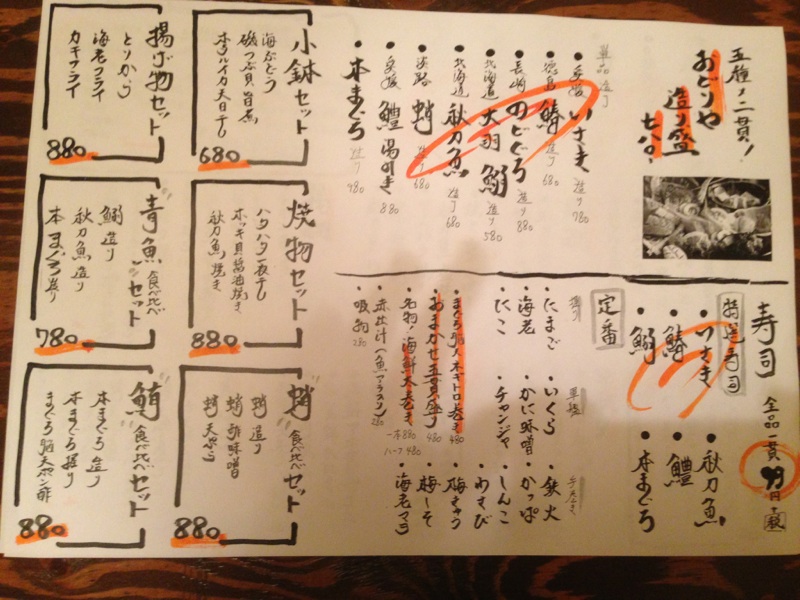 五種・二貫!
おどりや
造り盛
七八〇
単品造り
・愛媛 いさき 造り 780
・徳島 鱶 造り 680
・長崎 のどぐろ 造り 880
・北海道 大羽鰯 造り 580
・北海道 秋刀魚 造り 680
・淡路 蛸 造り 680
・愛媛 鱧 湯引き 880
・本まぐろ 造り 980
寿司 全品一貫 99円+税
特選寿司
・いさき
・鰯
・秋刀魚
・鱧
・本まぐろ
定番
握り
・たまご
・海老
・たこ
軍艦
・いくら
・かに味噌
・チャンジャ
・鉄火
・かっぱ
・しんこ
・わさび
・梅きゅう
・梅しそ
・海老マヨ
・まぐろ脳天本トロ巻き 480
・おまかせ五貫盛り 480
・名物!海鮮太巻き 一本 880 ハーフ 480
・赤出汁 280
・吸物 280
小鉢セット
海ぶどう
磯つぶ貝旨煮
本ホタルイカ天日干し
680
揚げ物セット
とりから
海老フライ
カキフライ
880
焼物セット
ハタハタ一夜干し
ホッキ貝醤油焼き
秋刀魚焼き
880
"青魚"食べ比べセット
鰯造り
秋刀魚造り
本まぐろ造り
780
"蛸"食べ比べセット
蛸造り
蛸酢味噌
蛸天ぷら
880
"鮪"食べ比べセット
本まぐろ造り
本まぐろ握り
まぐろ脳天ポン酢
880